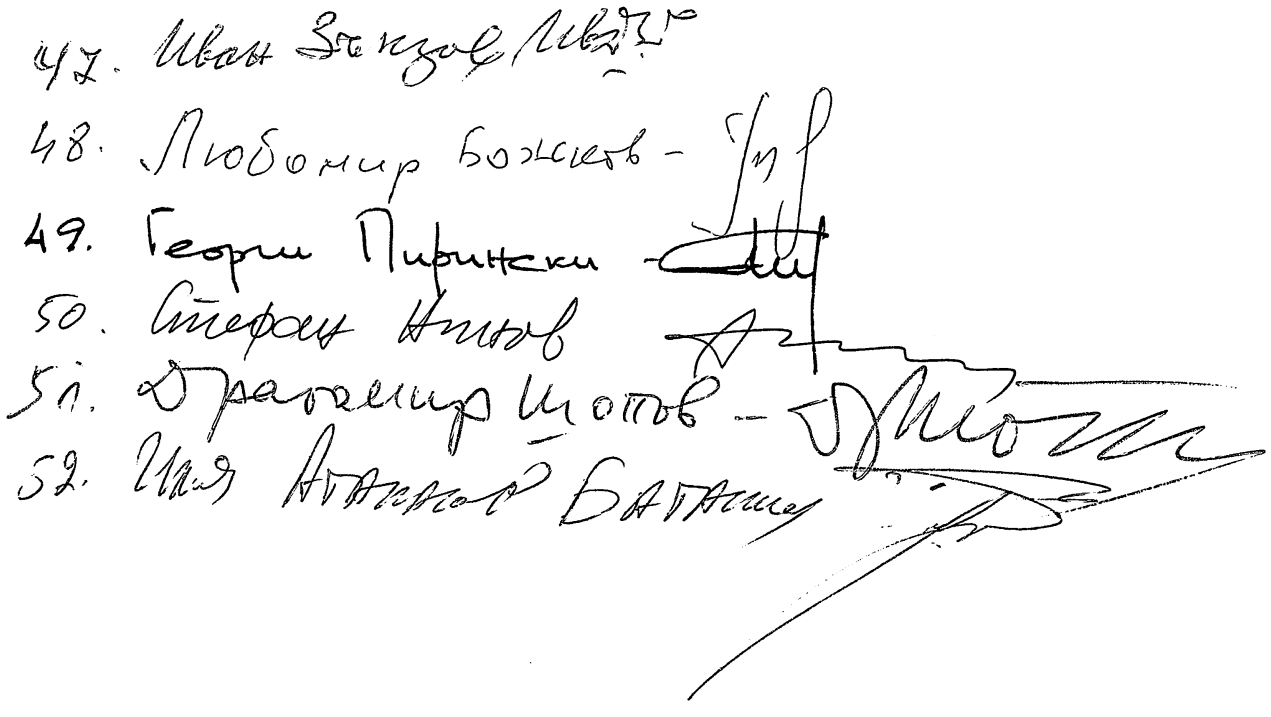 47. Иван
48. Любомир Божков -
49. Георги Пирински -
50. Стефан Нинов
51. Драгомир Шопов -
52. Илия Атанасов Баташки